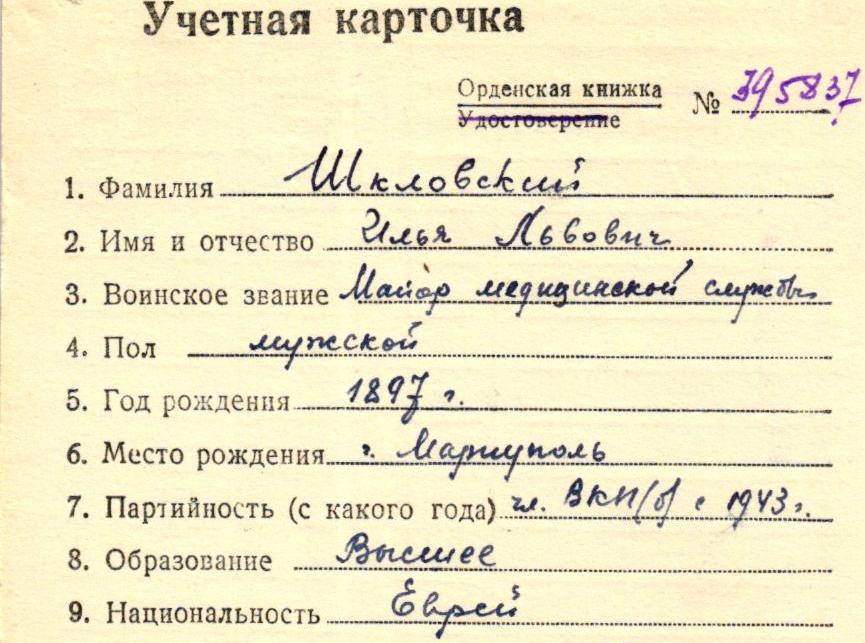 Учетная карточка
Орденская книжка № 395837
Удостоверение
1. Фамилия Шкловский
2. Имя и отчество Илья Львович
3. Воинское звание Майор медицинской службы
4. Пол мужской
5. Год рождения 1897 г.
6. Место рождения г. Мариуполь
7. Партийность (с какого года) чл. ВКП(б) с 1943 г.
8. Образование Высшее
9. Национальность Еврей